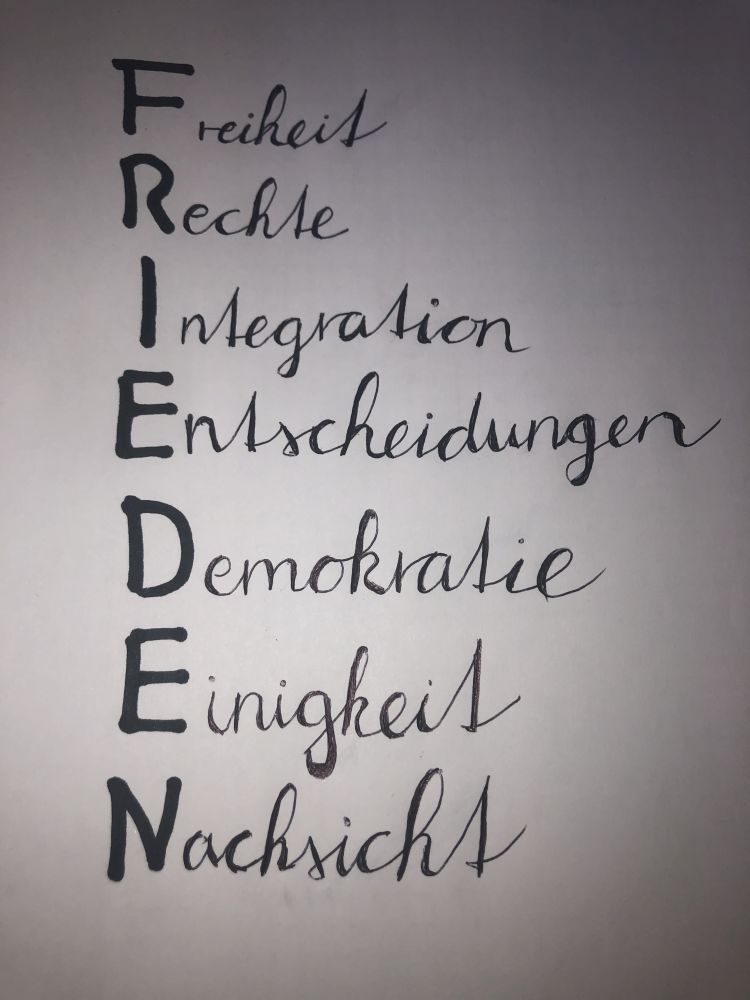 Freiheit
Rechte
Integration
Entscheidungen
Demokratie
Einigkeit
Nachsicht